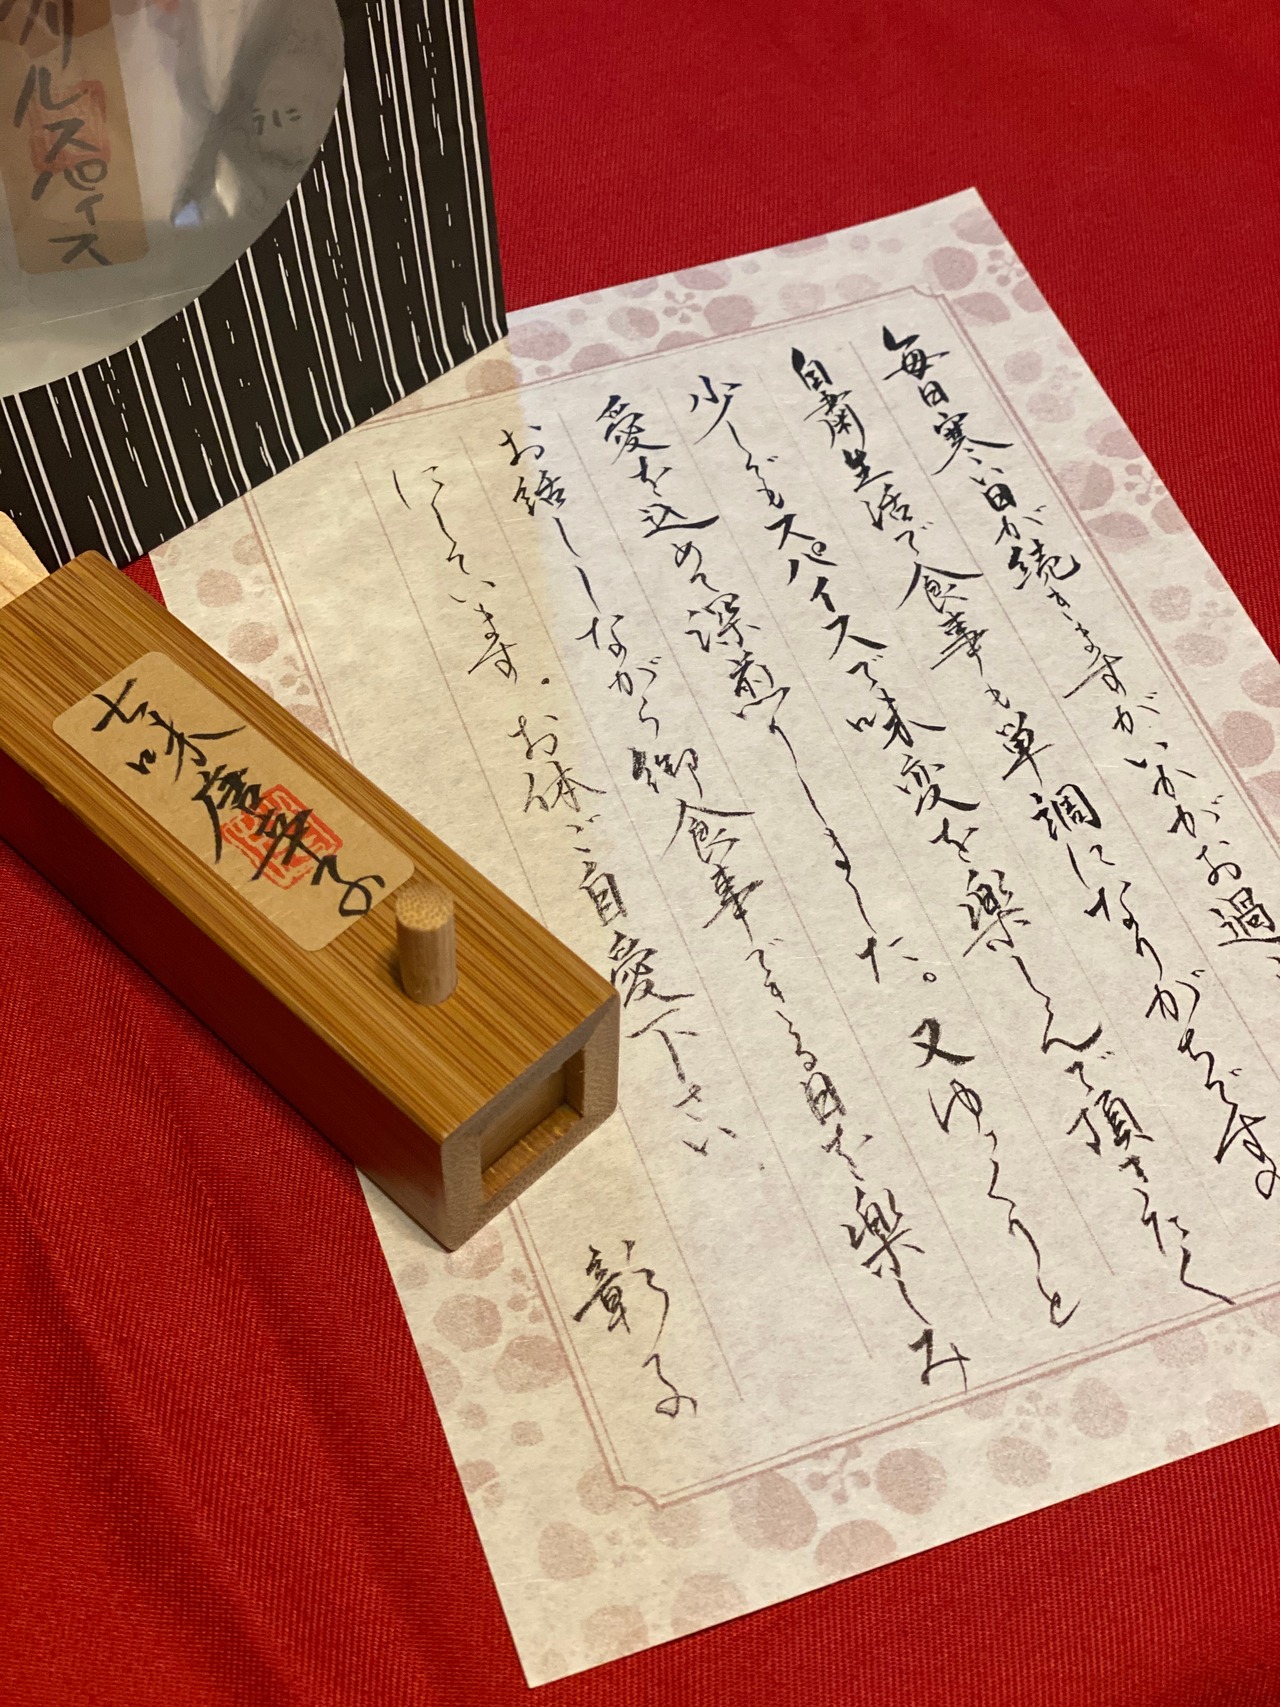 毎日寒い日が続きますがいかがお過
自粛生活で食事も単調になりがちです
少しでもスパイスで味変を楽しんで頂きたく
愛を込めて深煎りしました。又ゆっくりと
お話ししながら御食事できる日を楽しみ
にしています。お体ご自愛下さい
彰子
七味唐辛子
ルスパイス
うに